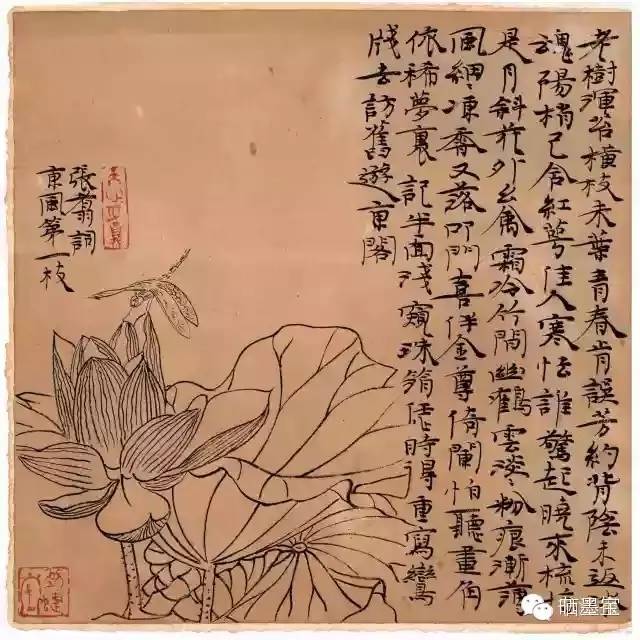 老樹渾苔橫枝未葉青春肯誤芳約背陰未返
魂陽梢已含紅萼佳人寒怯誰驚起曉來梳掠
是月斜花外幺禽霜冷竹間幽鶴雲淡々粉痕漸薄
風細々凍香又落叩門喜伴金尊倚闌怕聽畫角
依稀夢裏記半面淺窺珠箔甚時得重寫鸞
牋去訪舊遊東閣
張翥詞
東風第一枝
晒墨宝